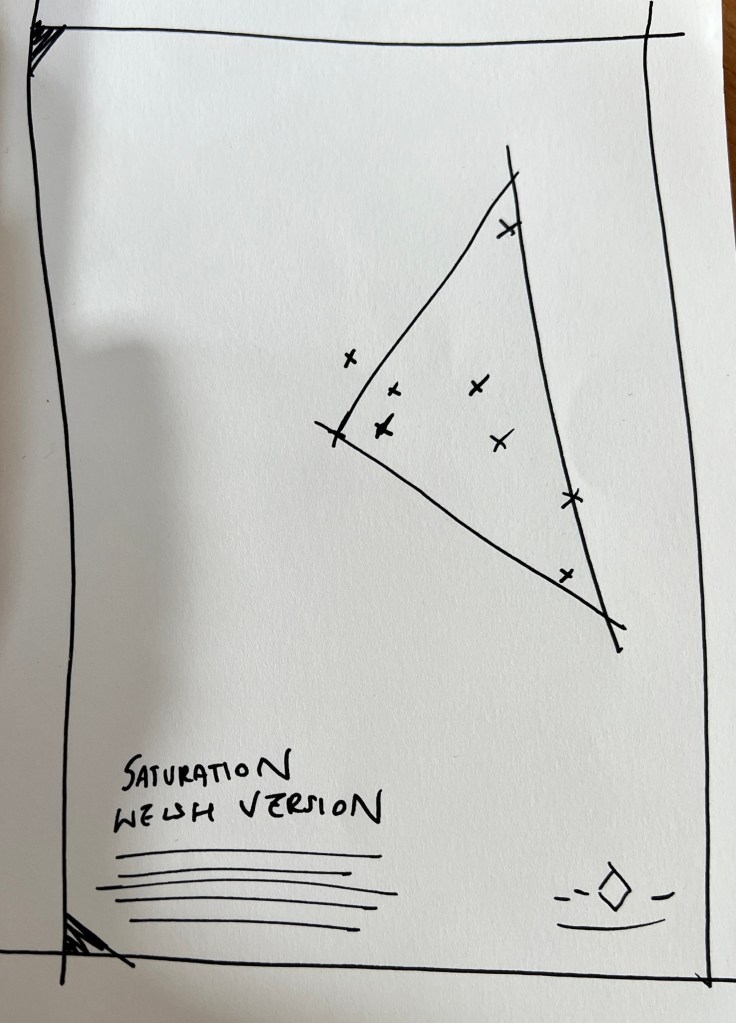 SATURATION
WELSH VERSION